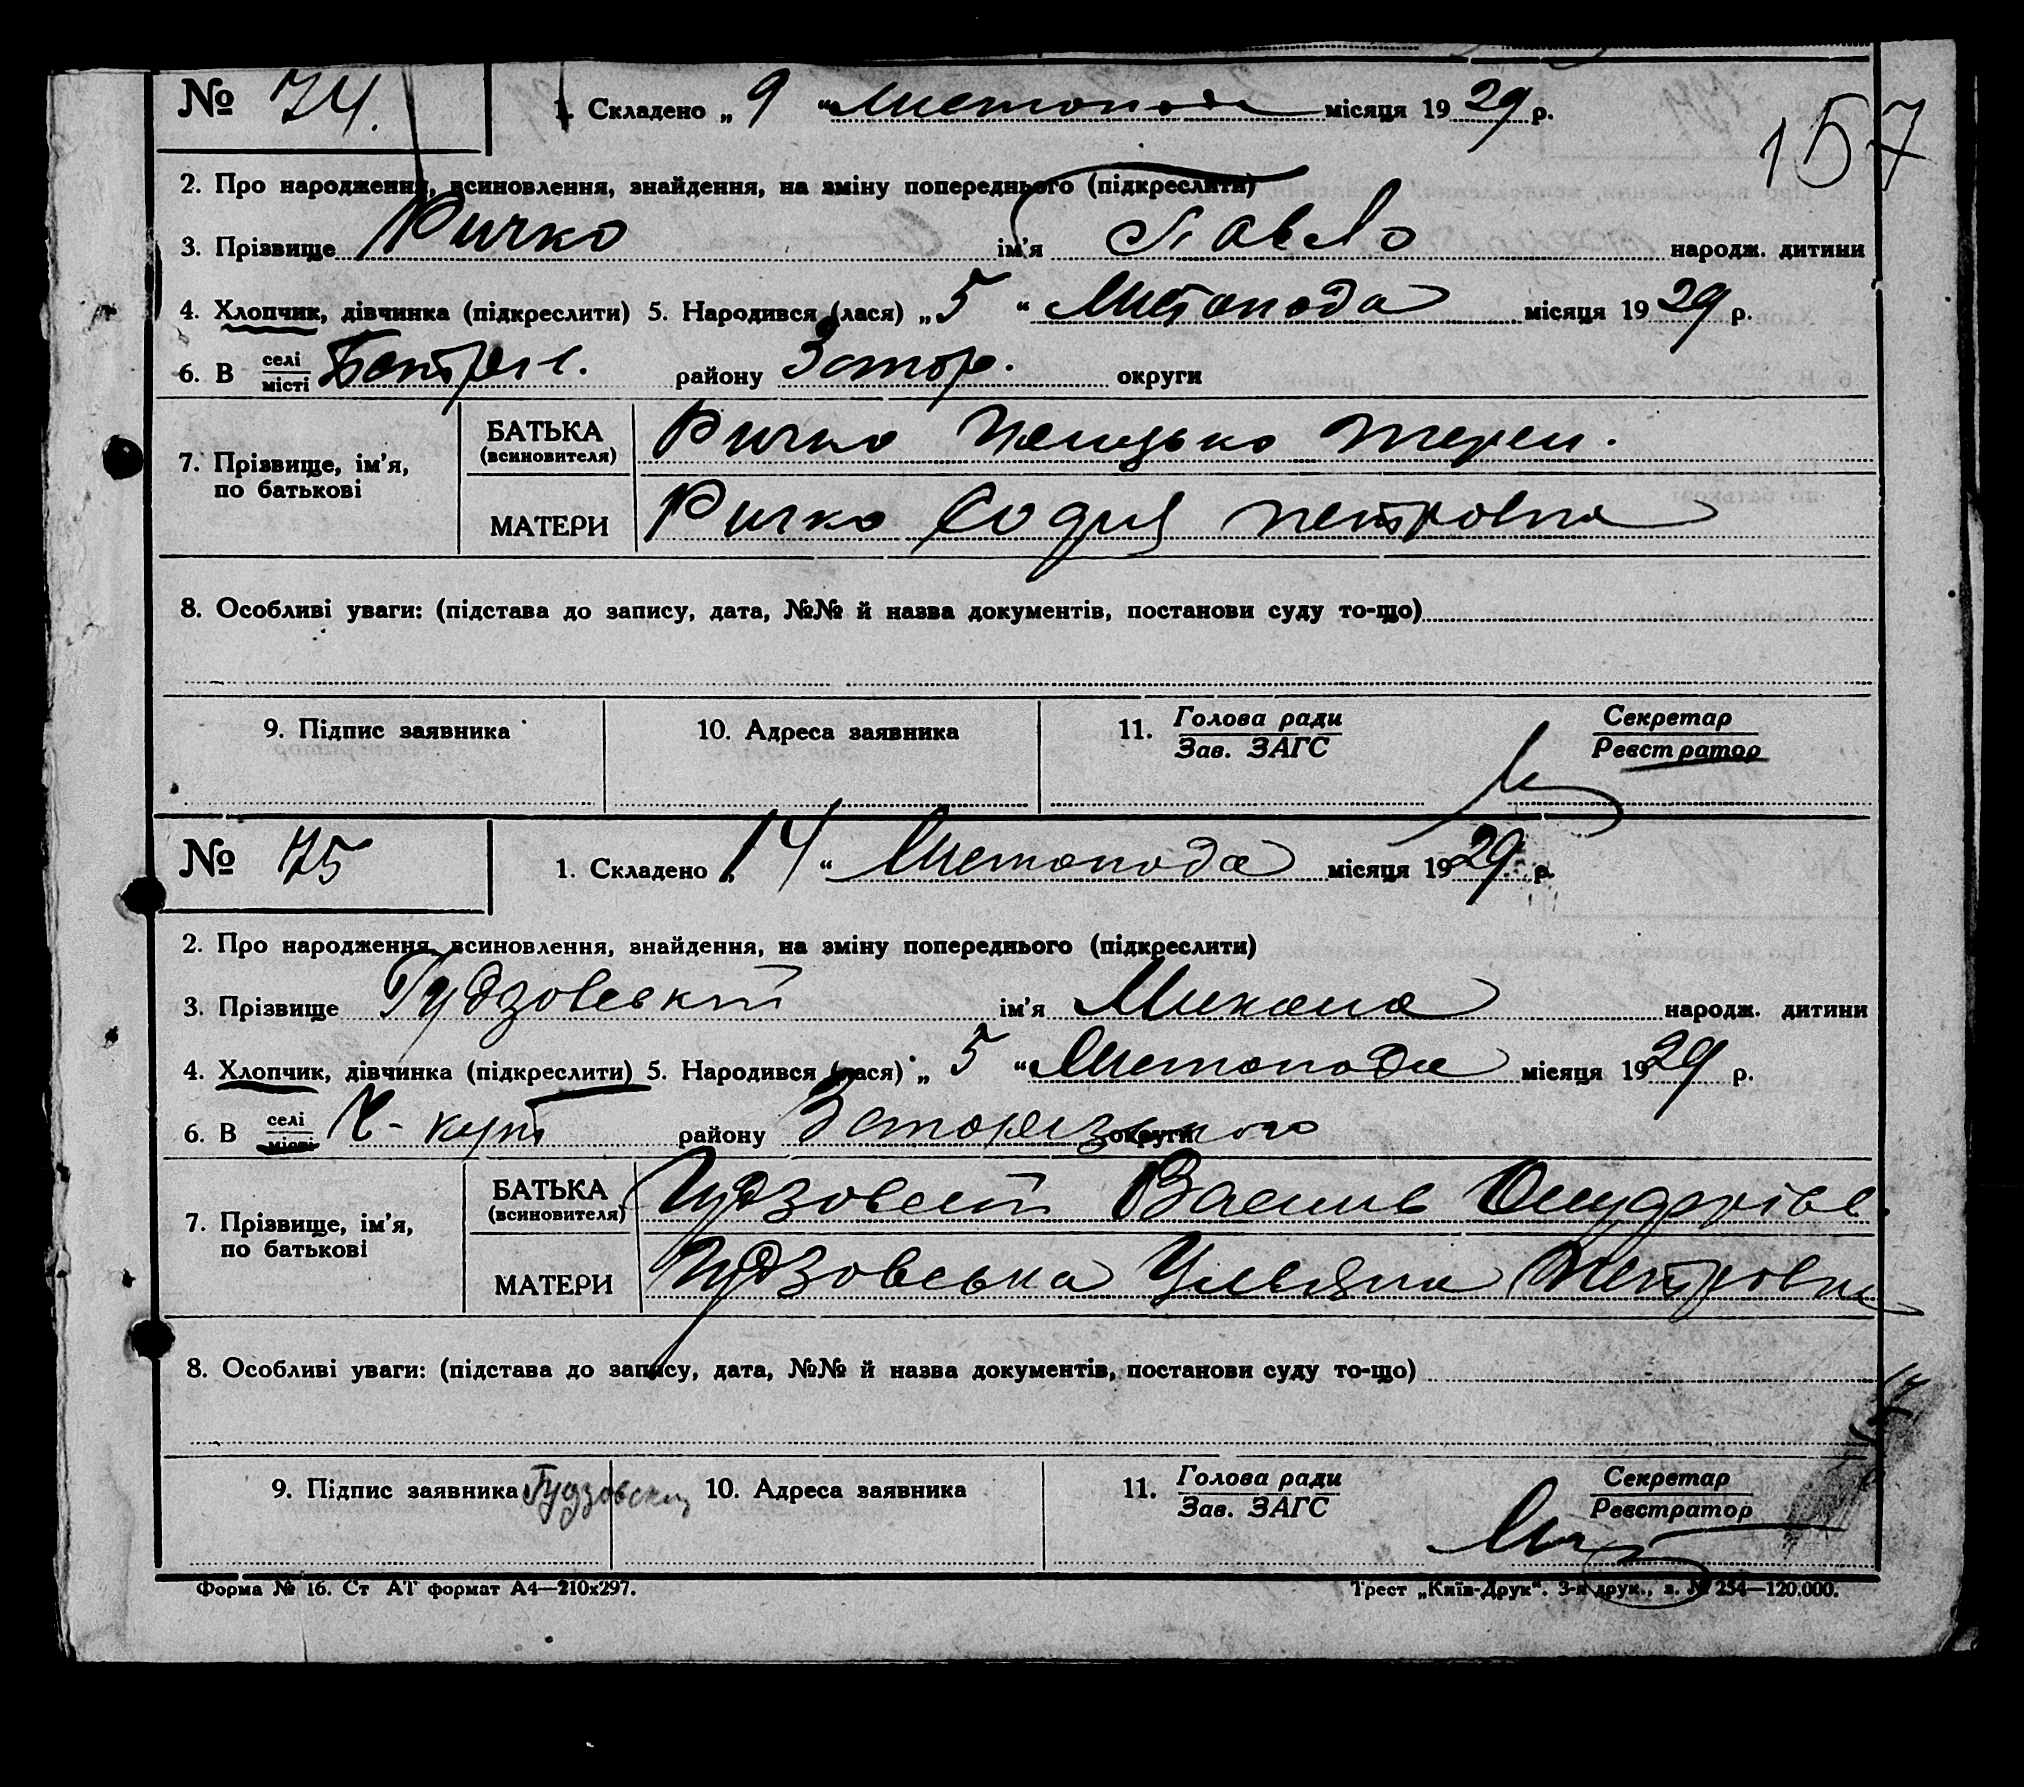 157
№ 74. 1. Складено „ 9 “ Листопода місяця 19 29 р.
2. Про народження, всиновлення, знайдення, на зміну попереднього (підкреслити)
3. Прізвище Ричко ім’я Павло народж. дитини
4. Хлопчик, дівчинка (підкреслити) 5. Народився (лася) „ 5 “ Листопода місяця 19 29 р.
6. В селі/місті району Запор. округи
7. Прізвище, ім’я, по батькові
БАТЬКА (всиновителя) Ричко
МАТЕРИ Ричко Петровна
8. Особливі уваги: (підстава до запису, дата, №№ й назва документів, постанови суду то-що)
9. Підпис заявника 10. Адреса заявника 11. Голова ради/Зав. ЗАГС Секретар/Реєстратор
№ 75 1. Складено „ 14 “ Листопода місяця 19 29 р.
2. Про народження, всиновлення, знайдення, на зміну попереднього (підкреслити)
3. Прізвище Гудзовський ім’я Микола народж. дитини
4. Хлопчик, дівчинка (підкреслити) 5. Народився (лася) „ 5 “ Листопода місяця 19 29 р.
6. В селі/місті району Запорізького округи
7. Прізвище, ім’я, по батькові
БАТЬКА (всиновителя) Василь
МАТЕРИ Гудзовська Ульяна Петровна
8. Особливі уваги: (підстава до запису, дата, №№ й назва документів, постанови суду то-що)
9. Підпис заявника Гудзовский 10. Адреса заявника 11. Голова ради/Зав. ЗАГС Секретар/Реєстратор
Форма № 16. Ст АТ формат А4—210х297. Трест „Київ-Друк“. 3-я друк., з. № 254—120.000.